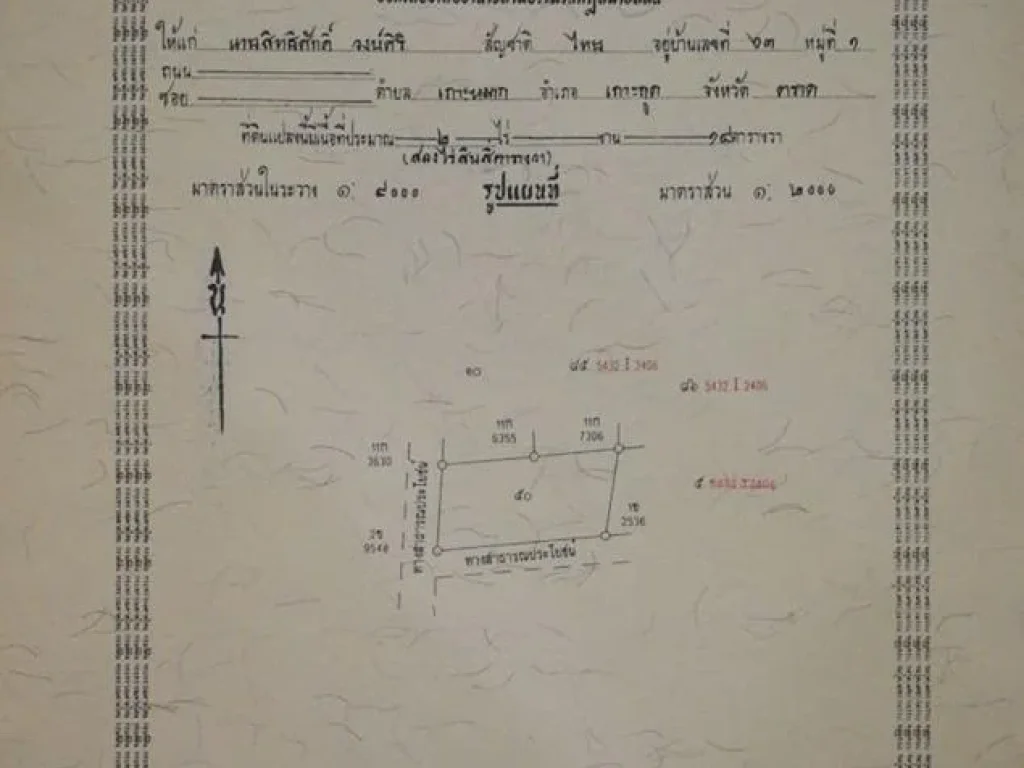 ให้แก่ นายสิทธิศักดิ์ วงษ์ศิริ สัญชาติ ไทย อยู่บ้านเลขที่ ๖๓ หมู่ที่ ๑
ถนน
ซอย ตำบล เกาะหมาก อำเภอ เกาะกูด จังหวัด ตราด
ที่ดินแปลงนี้มีเนื้อที่ประมาณ ๒ ไร่ งาน ๑๘ ตารางวา
มาตราส่วนในระวาง ๑: ๔๐๐๐ รูปแผนที่ มาตราส่วน ๑: ๒๐๐๐
น
๑๐ ๘๕ 5432 I 2406
๘๖ 5432 I 2406
11ก 6355
11ก 7306
11ก 3630
๕๐
๕
1ซ 2536
2ซ 9548
ทางสาธารณประโยชน์
ทางสาธารณประโยชน์